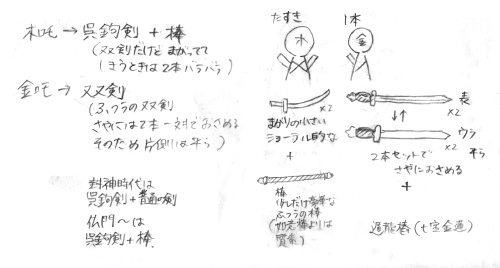 木吒→呉鉤剣+棒
(双剣だけどまがってて
(まうときは2本バラバラ)
金吒→双剣
(ふつうの双剣
さやには2本一対でおさめる
そのため片側は平ら)
封神時代は
呉鉤剣+普通の剣
仏門〜は
呉鉤剣+棒
たすき
木
×2
まがりの小さい
ショーテル的な
+
棒
少しだけ豪華な
ふつうの棒
(如意棒よりは
質素)
1本
金
表
×2
↑↓
ウラ
平ら
×2
2本セットで
さやにおさめる
+
遁龍棒(七宝金蓮)